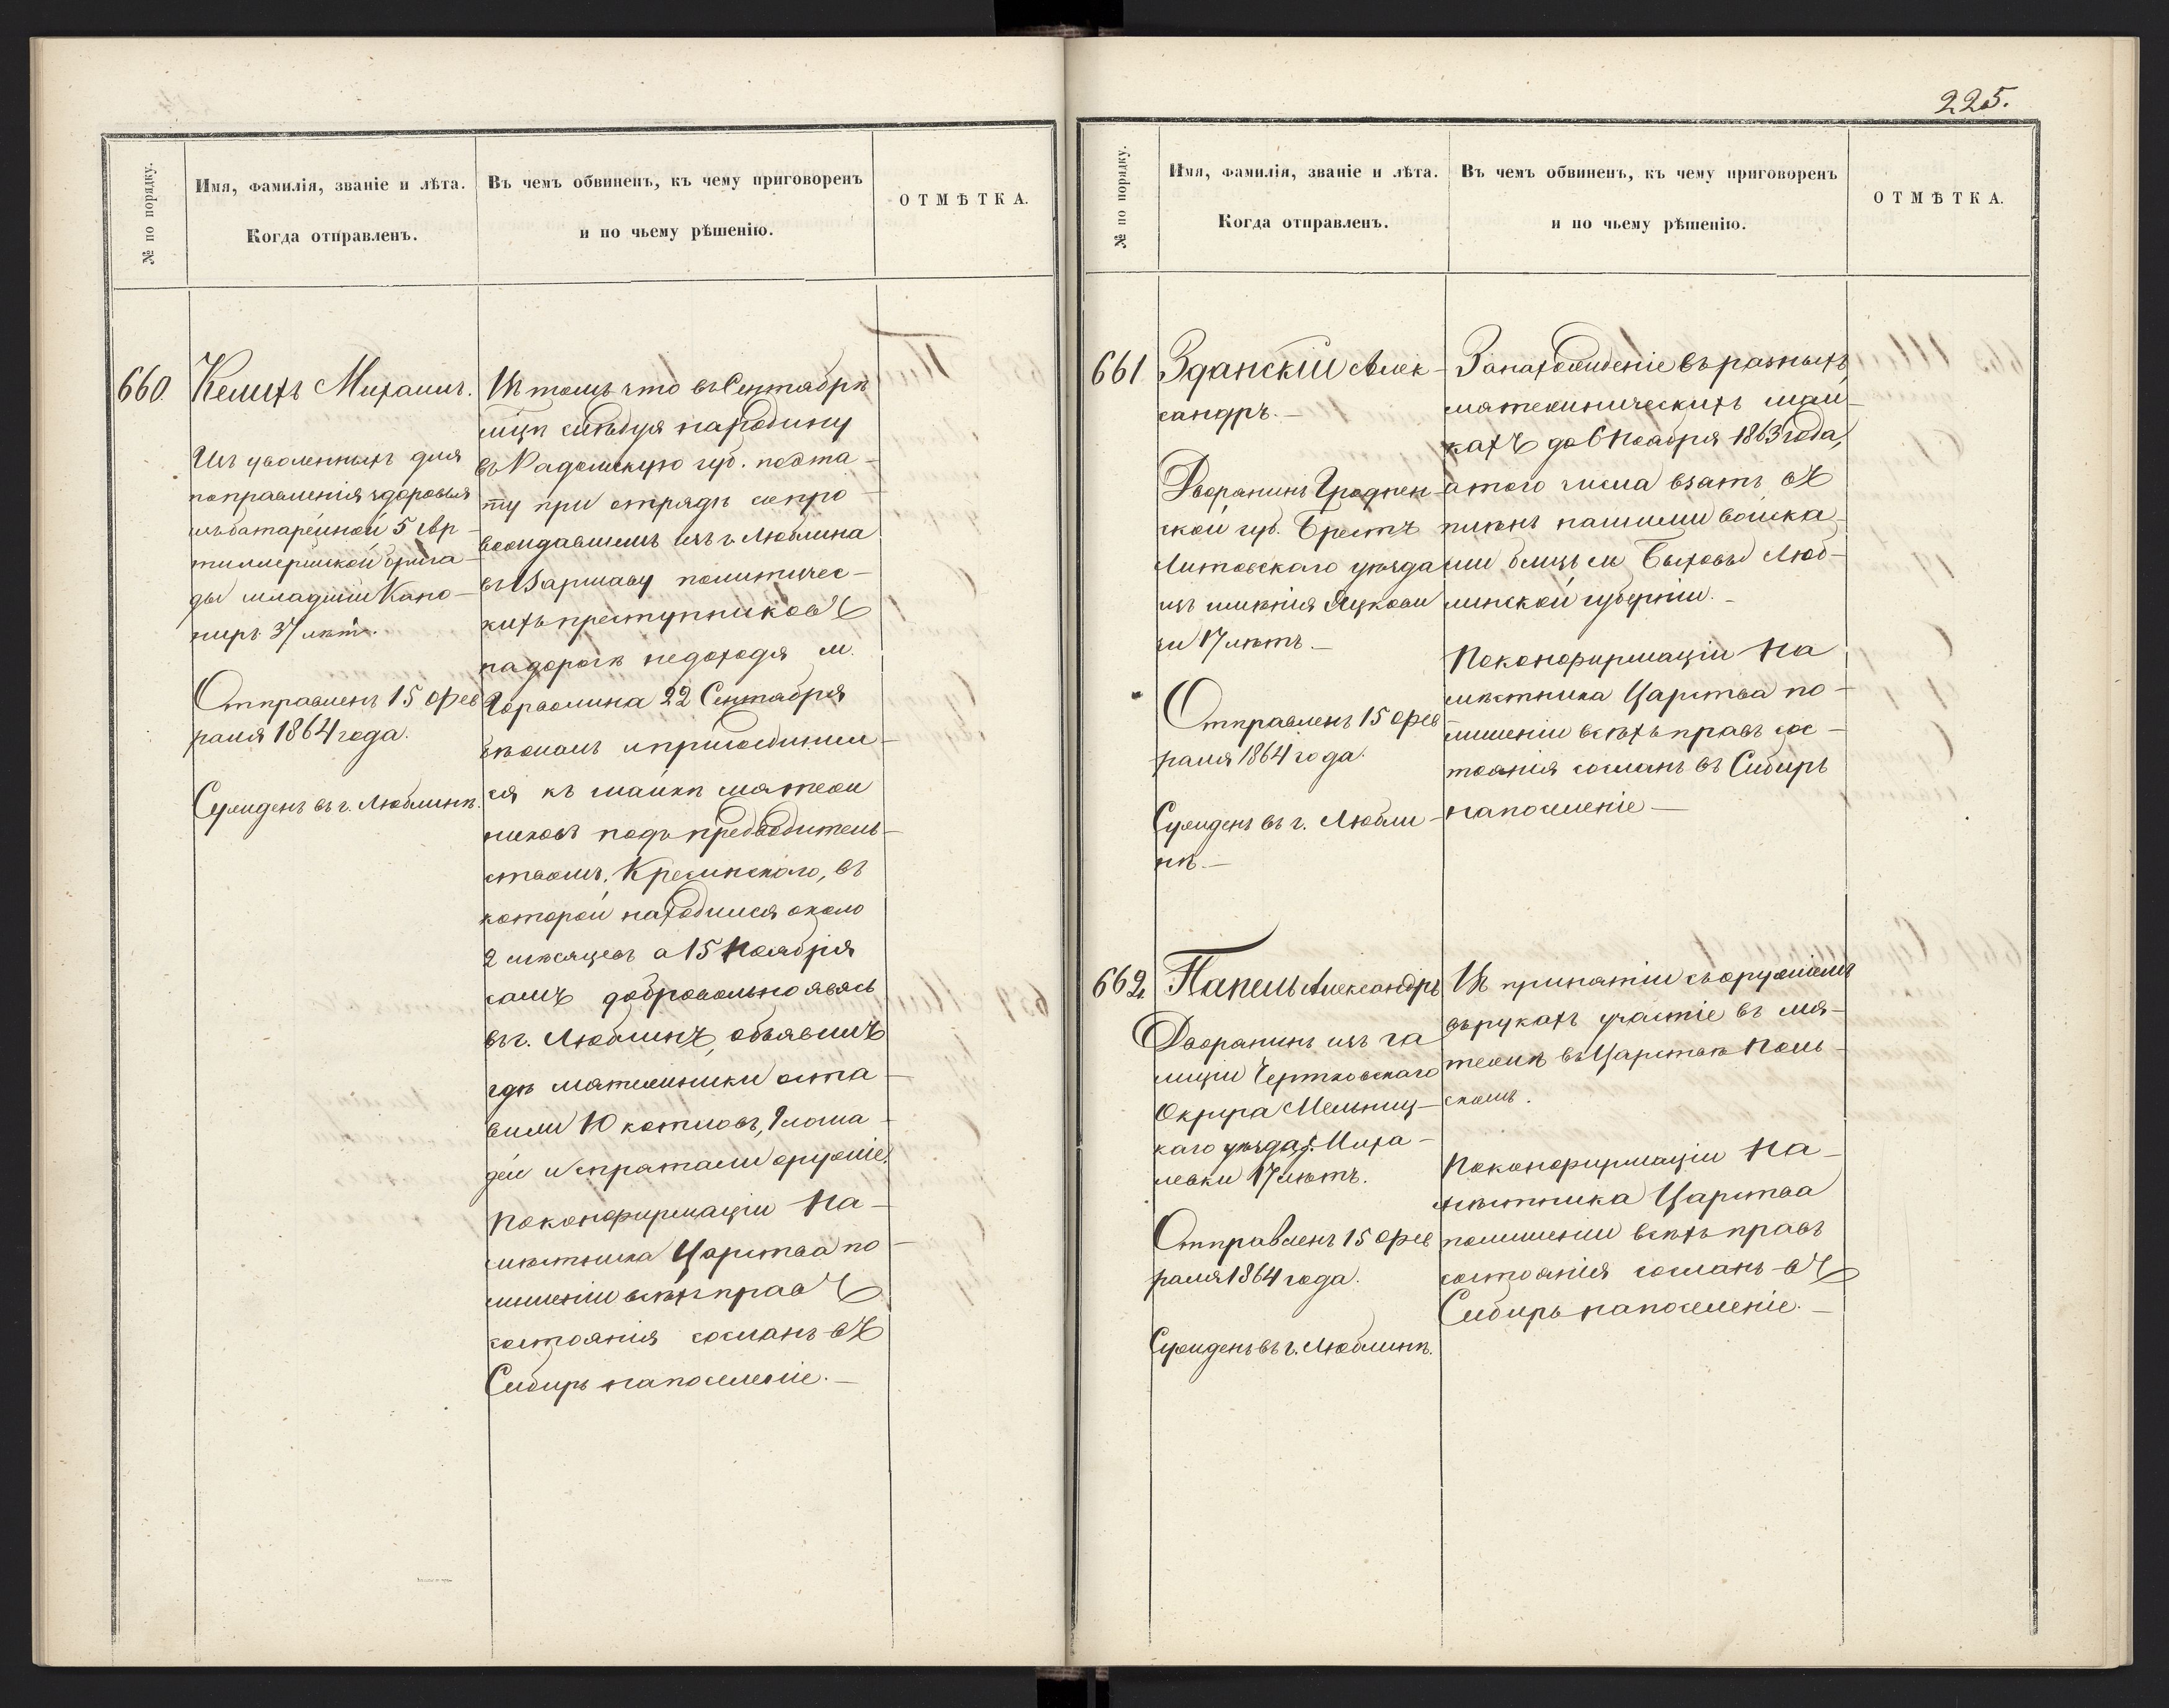 225.
№ по порядку.
Имя, фамилія, званіе и лѣта.
Когда отправленъ.
Въ чемъ обвиненъ, къ чему приговоренъ
и по чьему рѣшенію.
ОТМѢТКА.
660
Келихъ Михаилъ.
Изъ уволенныхъ для
поправленія здоровья
изъ батарейной 5 Ар-
тиллерійской брига-
ды младшій Кано-
ниръ 37 лѣтъ.
Отправленъ 15 Фев
раля 1864 года.
Сужденъ въ г. Люблинѣ.
Въ томъ что въ Сентябрѣ
мцѣ слѣдуя на родину
въ Радомскую губ. поэта-
пу при отрядѣ сопро-
вождавшемъ изъ г. Люблина
въ Варшаву политичес-
кихъ преступниковъ
на дорогѣ недоходя м.
Горволина 22 Сентября
бѣжалъ и присоединил-
ся къ шайкѣ мятеж
никовъ подъ предводитель-
ствомъ Кресинскаго, въ
которой находился около
2 мѣсяцевъ а 15 Ноября
самъ добровольно явясь
въ г. Люблинъ, объявилъ
гдѣ мятежники оста-
вили 10 котловъ, лоша-
дей и спрятали оружіе.
По конфирмаціи На-
мѣстника Царства по
лишеніи всѣхъ правъ
состоянія сосланъ въ
Сибирь на поселеніе.
№ по порядку.
Имя, фамилія, званіе и лѣта.
Когда отправленъ.
Въ чемъ обвиненъ, къ чему приговоренъ
и по чьему рѣшенію.
ОТМѢТКА.
661
Зданскій Алек-
сандръ.
Дворянинъ Гроднен-
ской губ. Брестъ
Литовскаго уѣзда
изъ имѣнія Яцкови
чи 17 лѣтъ.
Отправленъ 15 Фев
раля 1864 года.
Сужденъ въ г. Любли-
нѣ.
За нахожденіе въ разныхъ
мятежническихъ шай-
кахъ до 6 Ноября 1863 года,
а того числа взятъ въ
плѣнъ нашими войска-
ми близъ м. Быховы Люб-
линской губерніи.
По конфирмаціи На
мѣстника Царства по-
лишеніи всѣхъ правъ сос-
тоянія сосланъ въ Сибирь
на поселеніе
662.
Папель Александръ
Дворянинъ изъ Га
лиціи Чертковскаго
Округа Мельниц-
каго уѣзда д. Миха-
левки 17 лѣтъ.
Отправленъ 15 Фев
раля 1864 года.
Сужденъ въ г. Люблинѣ.
Въ принятіи съ оружіемъ
въ рукахъ участіе въ мя-
тежѣ въ Царствѣ Поль-
скомъ.
По конфирмаціи На-
мѣстника Царства
по лишеніи всѣхъ правъ
состоянія сосланъ въ
Сибирь на поселеніе.